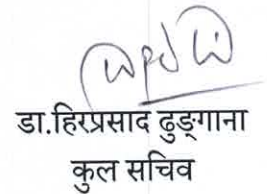 डा.हिरप्रसाद ढुङ्गाना
कुल सचिव